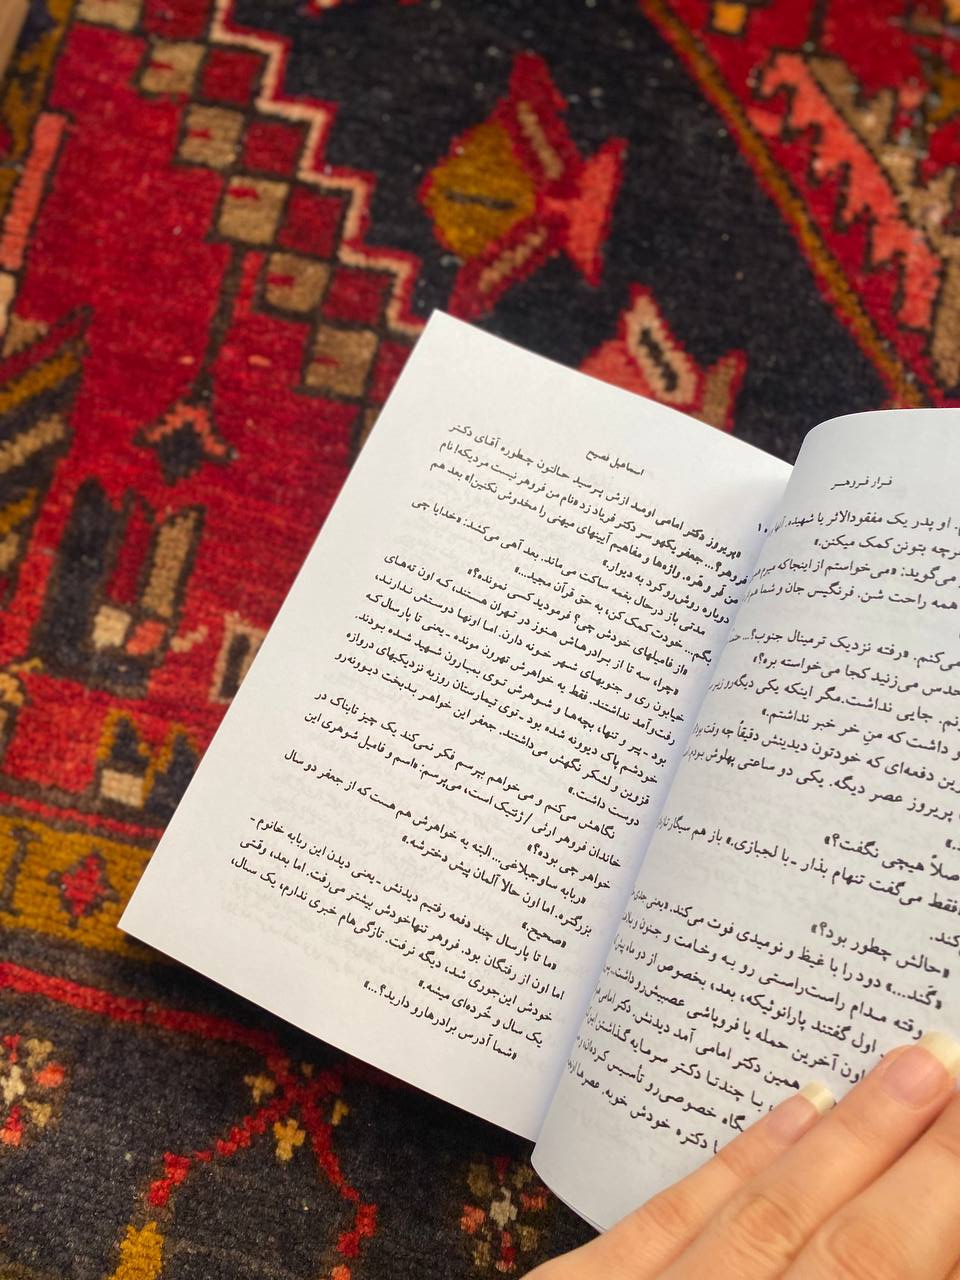 فرار فروهر
. او پدر یک مفقودالاثر یا شهیده.
هرچه بتونن کمک میکنن.»
می‌گوید: «می‌خواستم از اینجا که میرم
همه راحت شن. فرنگیس جان و شما هم
می‌کنم. «رفته نزدیک ترمینال جنوب؟...
حدس می‌زنید کجا می‌خواسته بره؟»
جایی نداشت. مگر اینکه یکی دیگه‌رو
و داشت که منِ خر خبر نداشتم.»
دفعه‌ای که خودتون دیدینش دقیقاً چه وقت بود
پریروز عصر دیگه. یکی دو ساعتی پهلوش بودم.
اصلاً هیچی نگفت؟»
فقط می‌گفت تنهام بذار ـ با لجبازی.» باز هم سیگار
کند.
«حالش چطور بود؟»
«گند...» دود را با غیظ و نومیدی فوت می‌کند. «یعنی
وقته مدام راست‌راستی رو به وخامت و جنون
اول گفتند پارانوئیکه، بعد، بخصوص از دو ماه
اون آخرین حمله یا فروپاشی عصبیش‌رو داشت...
همین دکتر امامی آمد دیدنش. دکتر امامی
با چندتا دکتر سرمایه گذاشتن
خصوصی‌رو تأسیس کرده‌اند،
دکتره خودش خوبه. عصرها
اسماعیل فصیح
«پریروز دکتر امامی اومد ازش پرسید حالتون چطوره آقای دکتر
فروهر؟... جعفر یکهو سر دکتر فریاد زد «نام من فروهر نیست مردیکه! نام
من فر و هَره. واژه‌ها و مفاهیم آیینهای میهنی را مخدوش نکنین!» بعد هم
دوباره روش‌رو کرد به دیوار.»
مدتی باز در حال بغمه ساکت می‌ماند. بعد آهی می‌کشد: «خدایا چی
بگم... خودت کمک کن، به حق قرآن مجید...»
«از فامیلهای خودش چی؟ فرمودید کسی نمونده؟»
«چرا، سه تا از برادرهاش هنوز در تهران هستند، که اون ته‌های
خیابون ری و جنوبهای شهر خونه دارن. اما اونها دوستش ندارند،
رفت‌وآمد نداشتند. فقط یه خواهرش تهرون مونده ـ یعنی تا پارسال که
بود ـ پیر و تنها، بچه‌ها و شوهرش توی بمبارون شهید شده بودند.
خودشم پاک دیوونه شده بود ـ توی تیمارستان روزبه نزدیکهای دروازه
قزوین و لشکر نگهش می‌داشتند. جعفر این خواهر بدبخت دیوونه‌رو
دوست داشت.»
نگاهش می‌کنم و می‌خواهم بپرسم فکر نمی‌کند یک چیز تابناک در
خاندان فروهر ارثی / ژنتیک است، می‌پرسم: «اسم و فامیل شوهری این
خواهر چی بوده؟»
«ربابه ساوجبلاغی... البته یه خواهرش هم هست که از جعفر دو سال
بزرگتره. اما اون حالا آلمان پیش دخترشه.»
«صحیح.»
«ما تا پارسال چند دفعه رفتیم دیدنش ـ یعنی دیدن این ربابه خانوم ـ
اما اون از رفتگان بود. فروهر تنها خودش بیشتر می‌رفت. اما بعد، وقتی
خودش این‌جوری شد، دیگه نرفت. تازگی‌هام خبری ندارم، یک سال،
یک سال و خُرده‌ای میشه.»
«شما آدرس برادرهارو دارید؟...»